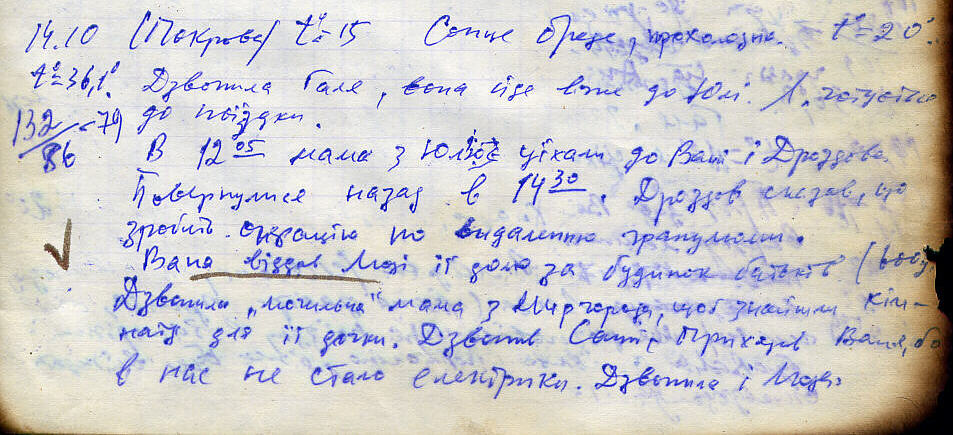 14.10 (Покрова) t°=15 Сонце бреде, прохолодно. t°=20°.
t°=36,1° Дзвонила Галя, вона їде вже до Юлі. Л. готується
132/86 -79 до поїздки.
В 12 05 мама з Юлією їхали до Вані і Дроздова.
Повернулися назад в 14 30. Дроздов сказав, що
зробить операцію по видаленню грануломи.
Ваня віддав Люзі її долю за будинок батьків
Дзвонила „ мама з Миргорода, щоб знайшли кім-
нату для її дочки. Дзвонив Саші. Приходив Ваня, бо
в нас не стало електрики. Дзвонила і Люза.